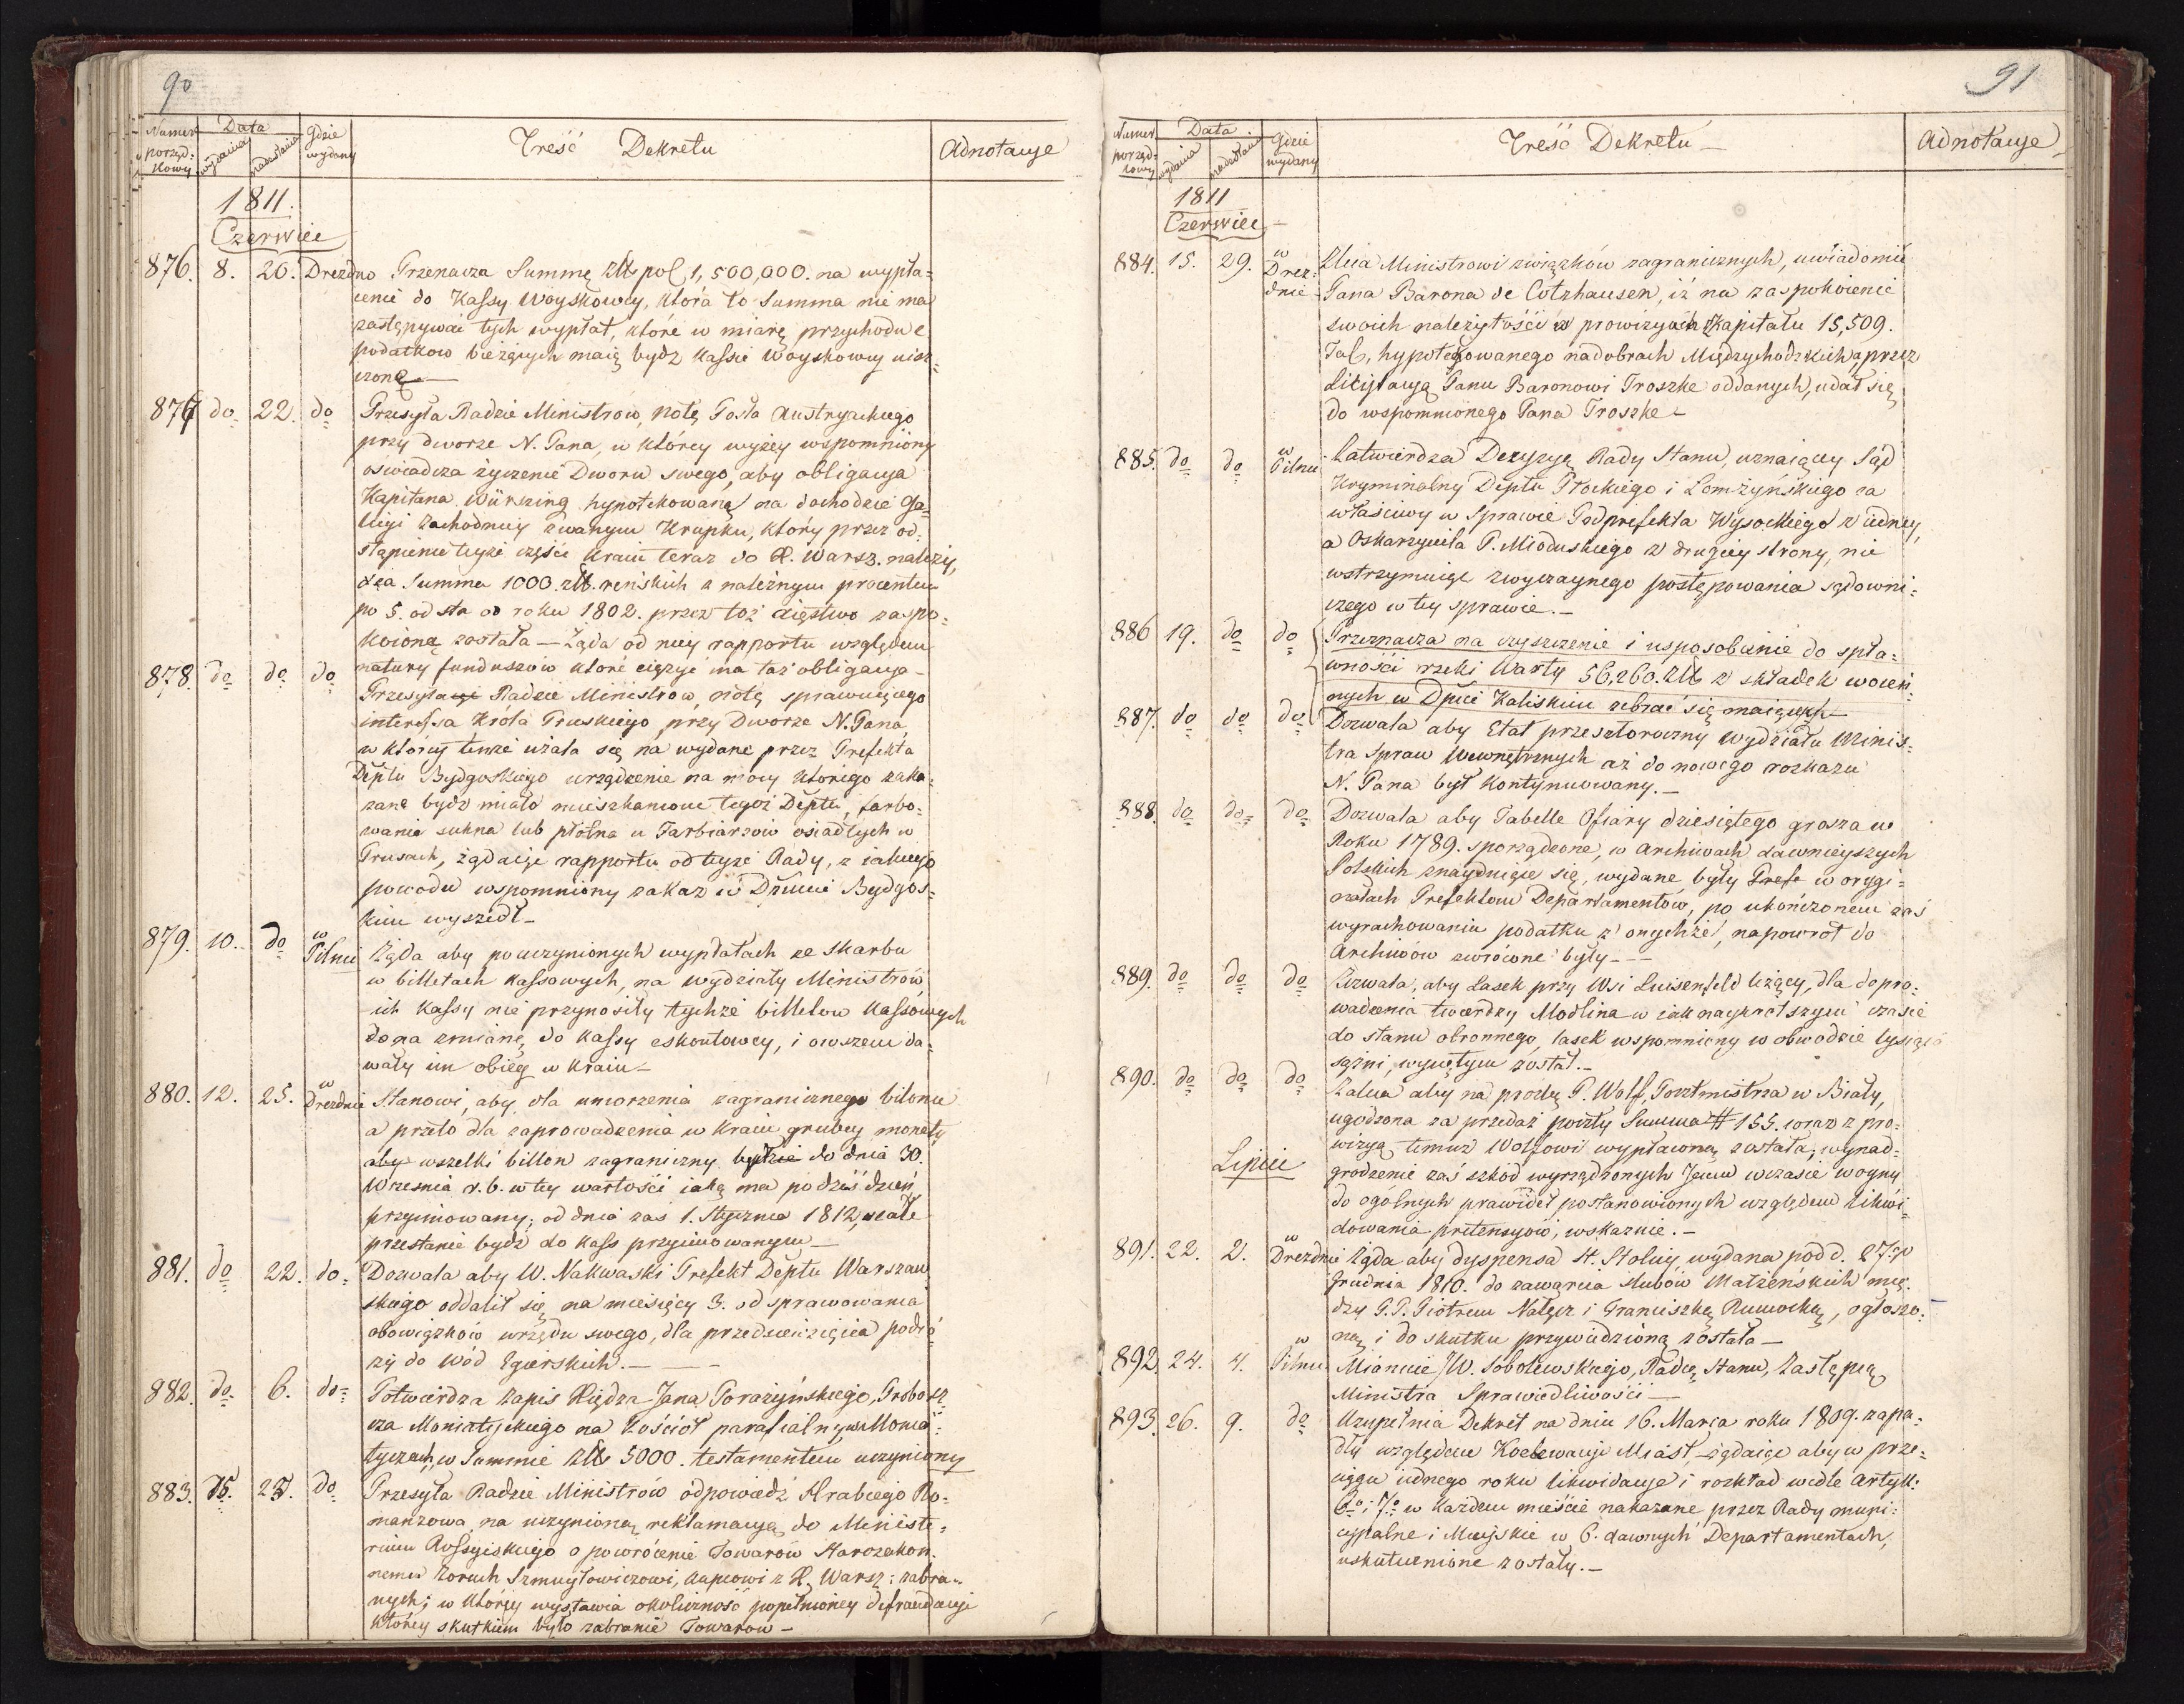 90
Numer porząd: kowy
Data
wydania
nadesłania
Gdzie wydany
Treść Dekretu
Adnotacye
1811.
Czerwiec
876. 8. 20. Drezdno Przenacza Summę Złt pol 1,500,000. na wypła=
cenie do Kassy Woyskowey, która to Summa nie ma
zastępywać tych wypłat, które w miarę przychodu z
podatkow bieżących maią bydz Kassie Woyskowey uisz=
czone
877 do 22. do Przesyła Radzie Ministrow, notę Posła Austryackiego
przy dworze N. Pana, w którey wyżey wspomniony
oświadcza życzenie Dworu swego, aby obligacya
Kapitana Würzing hypotekowaną na dochodzie Ga=
licyi Zachodniey zwanym Krupku, który przez od=
stąpienie teyże części kraiu teraz do X. Warsz. należy,
dla Summa 1000 złt. reńskich z należnym procentem
po 5. od sta od roku 1802. przez toż xięstwo zaspo=
koioną została — Żąda od niey rapportu względem
natury funduszow które ciężyć ma taż obligacya -
878. do do do Przesyła Radzie Ministrow, notę sprawuiącego
interessa Króla Pruskiego przy Dworze N. Pana,
w którey tenże użala się na wydane przez Prefekta
Deptu Bydgoskiego urządzenie na mocy którego zaka=
zane bydz miało mieszkańcom tegoż Deptu, farbo=
wania sukna lub płótna u Farbiarzow osiadłych w
Prusach, żądaiąc rapportu od teyże Rady, z iakiego
powodu wspomniony zakaz w Dpcie Bydgos=
kim wyszedł -
879. 10. do w Pilnic Żąda aby po uczynionych wypłatach ze Skarbu
w billetach kassowych, na wydziały Ministrów,
ich Kassy nie przynosiły tychże billetow Kassowych
do na zmianę, do Kassy eskontowey, i owszem da=
wały im obieg w Kraiu -
880. 12. 25. w Dreznie Stanowi, aby dla umorzenia zagranicznego bilonu
a przeto dla zaprowadzenia w kraiu grubey monety
aby wszelki billon zagraniczny będzie do dnia 30.
Wrzesnia r.b. w tey wartości iaką ma po dziś dzień
przyimowany; od dnia zas 1. Stycznia 1812, wcale
przestanie bydz do kass przyimowanym —
881. do 22. do- Dozwala aby W. Nakwaski Prefekt Deptu Warszaw
skiego oddalił się na miesięcy 3. od sprawowania
obowiązków urzędu swego, dla przedsięwzięcia podró
ży do wód Egierskich. —
882. do 6. do- Potwierdza zapis Xiędza Jana Porażyńskiego, Probosz
cza Moniatyckiego na Kościół parafialny w Monia=
tyczach, w Summie Złt 5000. testamentem uczyniony
883. 15. 27. do Przesyła Radzie Ministrów odpowiedź Hrabiego Ro=
manzowa, na uczynioną reklamacyą do Ministe=
rium Rossyiskiego o powrócenie Towarow Starozakon.
nemu Zoruch Szmuyłowiczowi, kupcowi z X. Warsz: zabra=
nych; w którey wystawia okoliczność popełnioney defraudacyi
którey skutkiem było zabranie Towarow -
91
Numer porząd= kowy
Data.
wydania
nadesłania
Gdzie wydany
Treść Dekretu —
Adnotacye
1811
Czerwiec
884. 15. 29. w Drez= dnie Zleca Ministrowi związków zagranicznych, uwiadomić
Pana Barona de Cotzhausen, iż na zaspokoienie
swoich należytości w prowizyach Kapitału 15,509.
Tal, hypotekowanego na dobrach Międzychodzkich a przez
Licytacyą Panu Baronowi Troszke oddanych, udał się
do wspomnionego Pana Troszke -
885. do do w Pilnic Zatwierdza Decyzyę Rady Stanu, uznaiącey Sąd
Kryminalny Deptu Płockiego i Łomżyńskiego za
właściwy w Sprawie Podprefekta Wysockiego z iedney,
a Oskarzyciela P. Mioduskiego z drugiey strony, nie
wstrzymuiąc zwyczaynego postępowania sądowni=
czego w tey sprawie. -
886 19. do do Przeznacza na czyszczenie i usposobienie do spła=
wności rzeki Warty 56,260. Złt z składek woien=
nych w Dpcie Kaliskim zebrać się maiących
887. do do do Dozwala aby Etat przeszłoroczny Wydziału Minis=
tra Spraw Wewnętrznych aż do nowego rozkazu
N. Pana był kontynuowany. -
888. do do- do Dozwala aby Tabelle Ofiary dziesiętego grosza w
Roku 1789. sporządzone, w Archiwach dawnieyszych
Polskich znayduiące się, wydane były Prefe w orygi=
nałach Prefektom Departamentów, po ukończonem zaś
wyrachowaniu podatku z onychże, napowrot do
Archiwów zwrócone były - -
889. do do do Zezwala, aby Lasek przy Wsi Luisenfeld leżący, dla dopro=
wadzenia twierdzy Modlina w iak naykrótszym czasie
do stanu obronnego, lasek wspomniony w obwodzie tysiąca
sążni, wyciętym został. -
890. do do do Zaleca aby na prozbę P. Wolf, Pocztmistrza w Biały,
ugodzona za przedaż poczty Summa # 155. wraz z pro=
wizyą temuż Wolfowi wypłaconą została; wynad=
Lipiec
grodzenie zaś szkód wyrządzonych Jemu w czasie woyny
do ogólnych prawideł postanowionych względem likwi=
dowania pretensyow, wskaznie. -
891. 22. 2. w Dreznie Żąda aby dyspensa St. Stolicy wydana pod d. 27go
Grudnia 1810. do zawarcia slubów Małżeńskich mię=
dzy P.P. Piotrem Nałęcz i Franciszką Rumocką, ogłoszo=
ną i do skutku przywiedzioną została —
892. 24. 4. w Pilnic Mianuie JW. Sobolewskiego, Radcę Stanu, Zastępcą
Ministra Sprawiedliwości —
893. 26. 9. do Uzupełnia Dekret na dniu 16. Marca roku 1809. zapa=
dły względem Koekwacyi Miast, żądaiąc aby w prze=
ciągu iednego roku likwidacya i rozkład wedle Artyk:
6o i 7o w każdem mieście nakazane przez Rady muni=
cypalne i Mieyskie w 6. dawnych Departamentach,
uskutecznione zostały. -